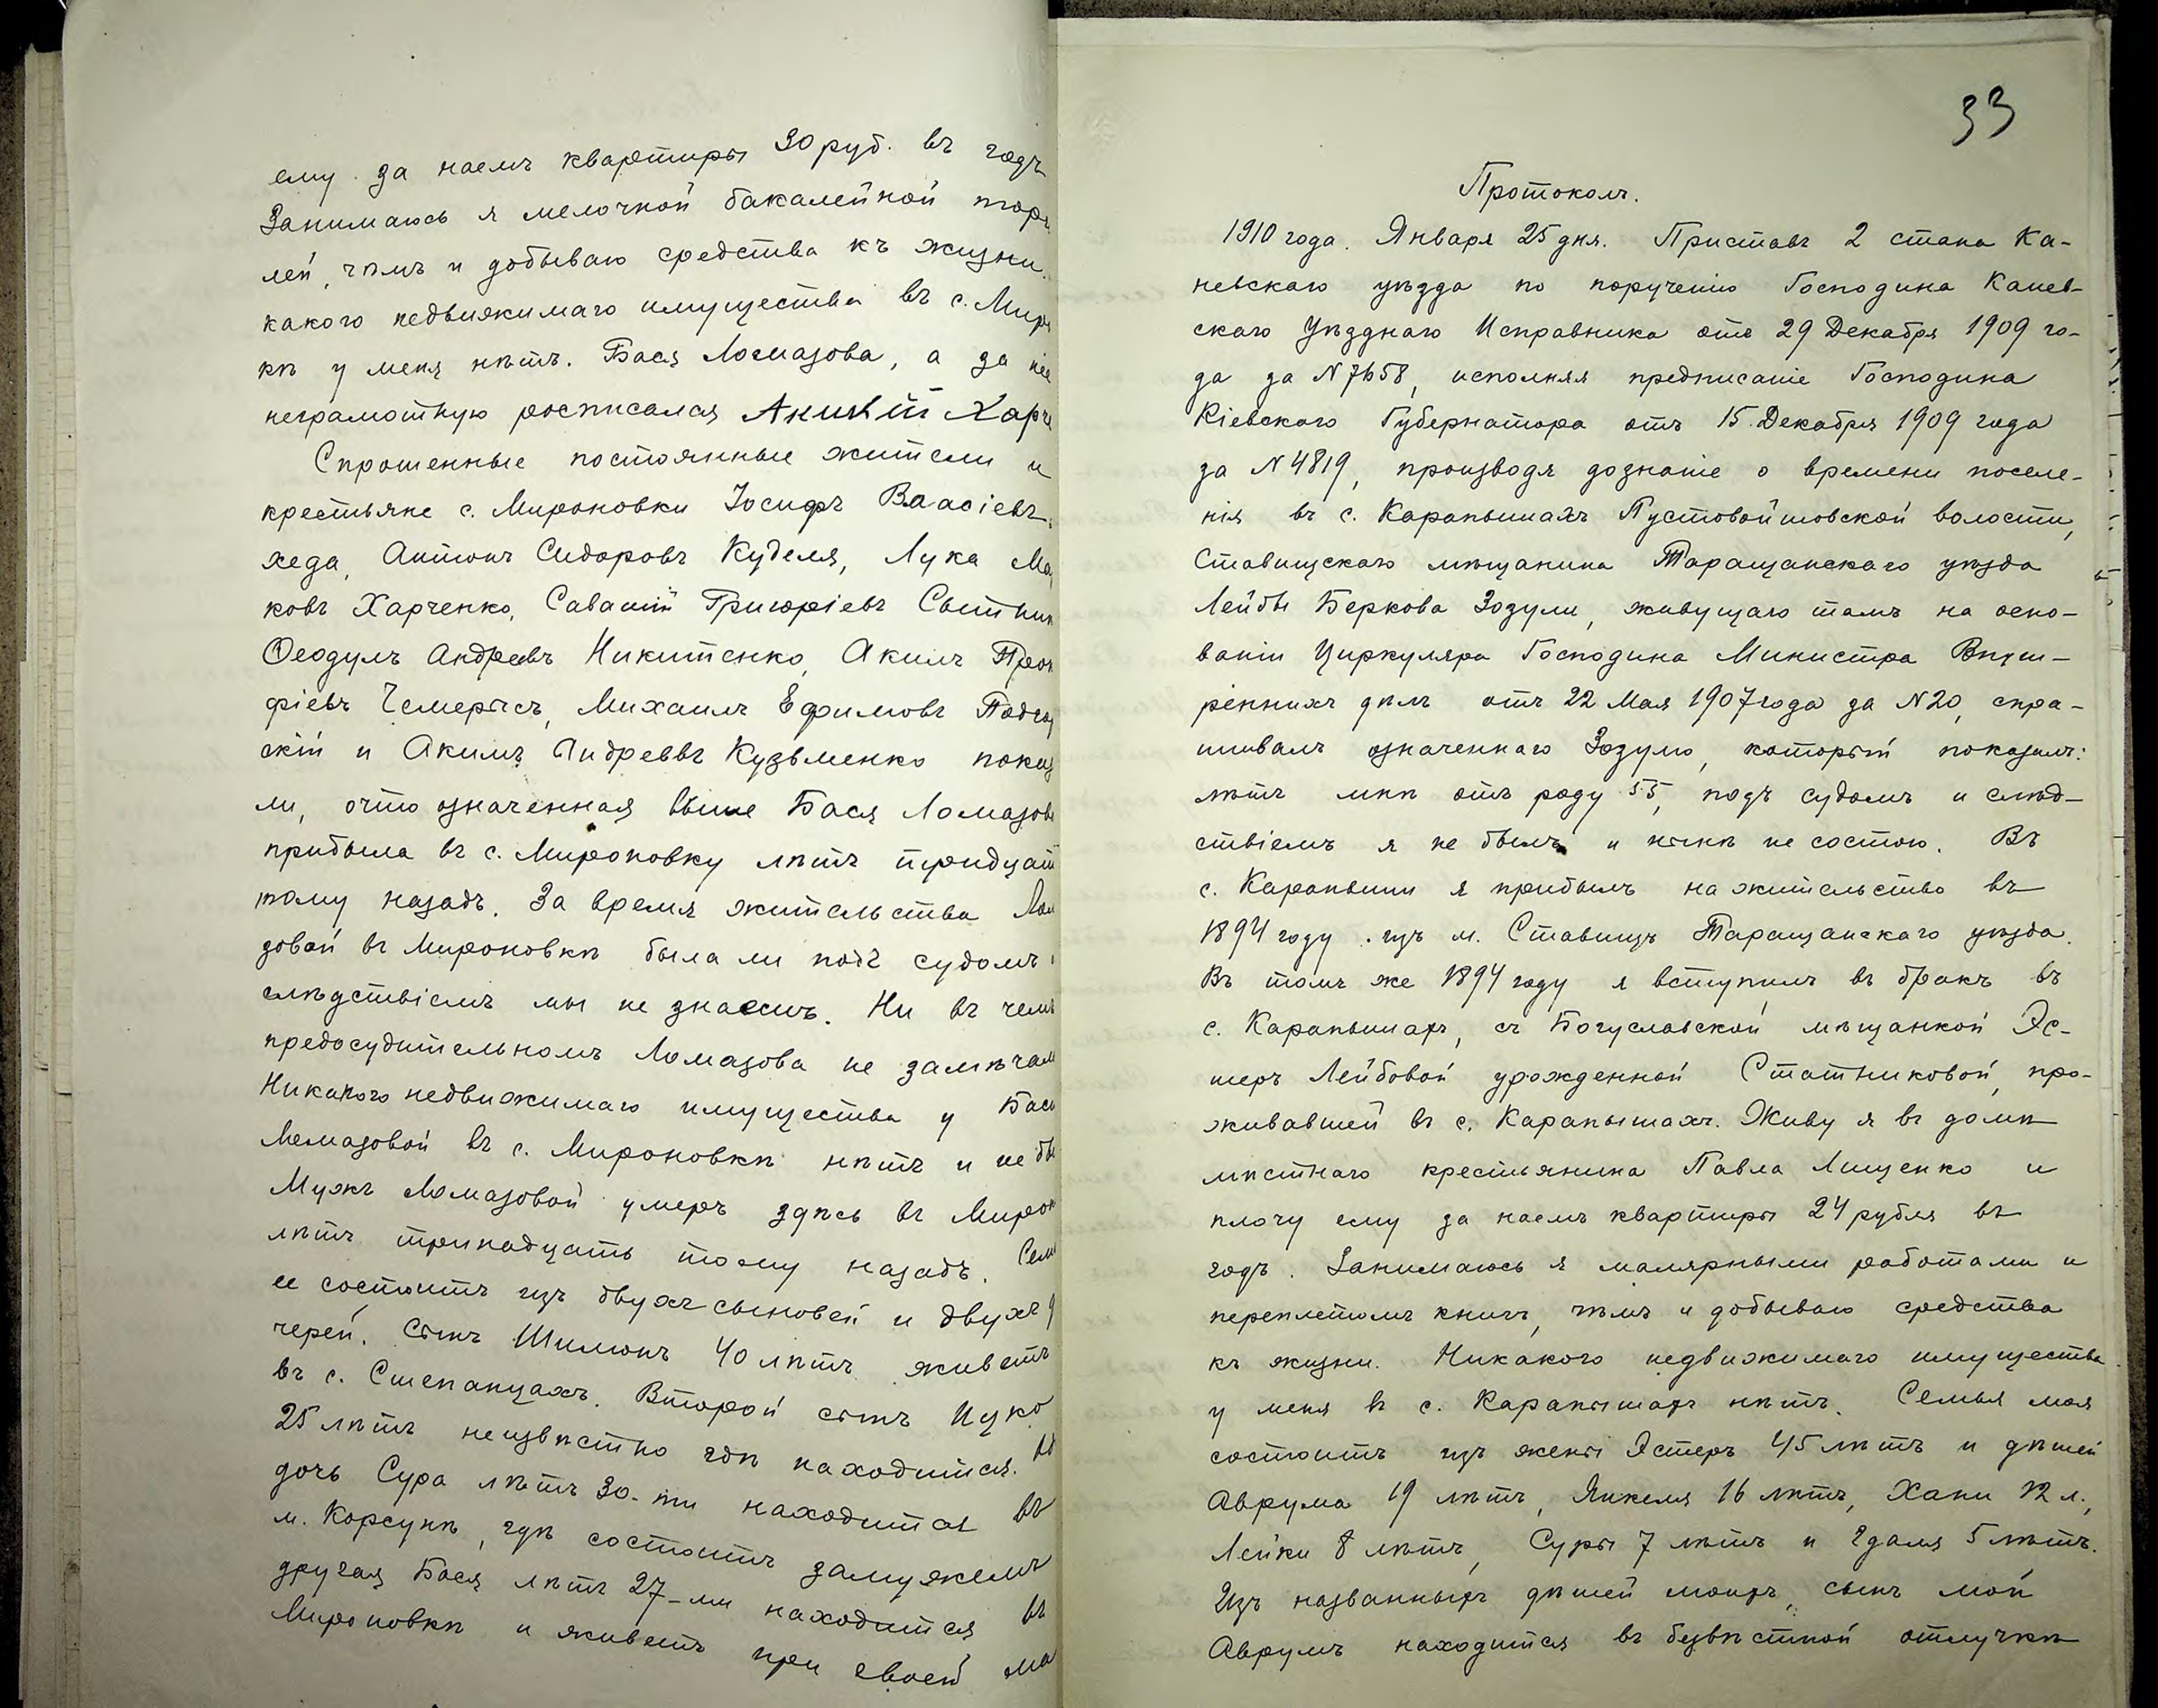 ему за наемъ квартиры 30 руб. въ годъ
Занимаюсь я мелочной бакалейной торг
лей, чѣмъ и добываю средства къ жизни.
какого недвижимаго имущества въ с. Миро
кѣ у меня нѣтъ. Бася Ломазова, а за нее
неграмотную росписался Акилій Харч
Спрошенные постоянные жители и
крестьяне с. Мироновки Іосифъ Власіевъ
хеда, Антонъ Сидоровъ Куделя, Лука Ма
ковъ Харченко, Саватій Григоріевъ Сытник
Ѳеодулъ Андреевъ Никитенко, Акимъ Про
фіевъ Чемерысъ, Михаилъ Ефимовъ Подго
скій и Акимъ Андреевъ Кузьменко показ
ли, что означенная выше Бася Ломазов
прибыла въ с. Мироновку лѣтъ тридцат
тому назадъ. За время жительства Лом
зовой въ Мироновкѣ была ли подъ судомъ и
слѣдствіемъ мы не знаемъ. Ни въ чемъ
предосудительномъ Ломазова не замѣчал
Никакого недвижимаго имущества у Бас
Ломазовой въ с. Мироновкѣ нѣтъ и не бы
Мужъ Ломазовой умеръ здѣсь въ Мирон
лѣтъ тринадцать тому назадъ. Сем
ее состоитъ изъ двухъ сыновей и двухъ д
черей. Сынъ Шимонъ 40 лѣтъ живетъ
въ с. Степанцахъ. Второй сынъ Ицко
25 лѣтъ неизвѣстно гдѣ находится.
дочь Сура лѣтъ 30-ти находится въ
м. Корсунѣ, гдѣ состоитъ замужемъ
другая Бася лѣтъ 27-ми находится въ
Мироновкѣ и живетъ при своей ма
33
Протоколъ.
1910 года. Января 25 дня. Приставъ 2 стана Ка-
невскаго уѣзда по порученію Господина Канев-
скаго Уѣзднаго Исправника отъ 29 Декабря 1909 го-
да за N 7658, исполняя предписаніе Господина
Кіевскаго Губернатора отъ 15 Декабря 1909 года
за N 4819, производя дознаніе о времени поселе-
нія въ с. Карапышахъ Пустовойтовской волости,
Ставищскаго мѣщанина Таращанскаго уѣзда
Лейбы Беркова Зозули, живущаго тамъ на осно-
ваніи Циркуляра Господина Министра Внут-
реннихъ дѣлъ отъ 22 Мая 1907 года за N 20, спра-
шивалъ означеннаго Зозулю, который показалъ:
лѣтъ мнѣ отъ роду 55, подъ судомъ и слѣд-
ствіемъ я не былъ и нынѣ не состою. Въ
с. Карапыши я прибылъ на жительство въ
1894 году изъ м. Ставищъ Таращанскаго уѣзда.
Въ томъ же 1894 году я вступилъ въ бракъ въ
с. Карапышахъ, съ Богуславской мѣщанкой Эс-
теръ Лейбовой урожденной Статниковой, про-
живавшей въ с. Карапышахъ. Живу я въ домѣ
мѣстнаго крестьянина Павла Лищенко и
плочу ему за наемъ квартиры 24 рубля въ
годъ. Занимаюсь я малярными работами и
переплетомъ книгъ, чѣмъ и добываю средства
къ жизни. Никакого недвижимаго имущества
у меня въ с. Карапышахъ нѣтъ. Семья моя
состоитъ изъ жены Эстеръ 45 лѣтъ и дѣтей
Аврума 19 лѣтъ, Янкеля 16 лѣтъ, Хани 12 л.,
Лейки 8 лѣтъ, Суры 7 лѣтъ и Гдаля 5 лѣтъ.
Изъ названныхъ дѣтей моихъ, сынъ мой
Аврумъ находится въ безвѣстной отлучкѣ